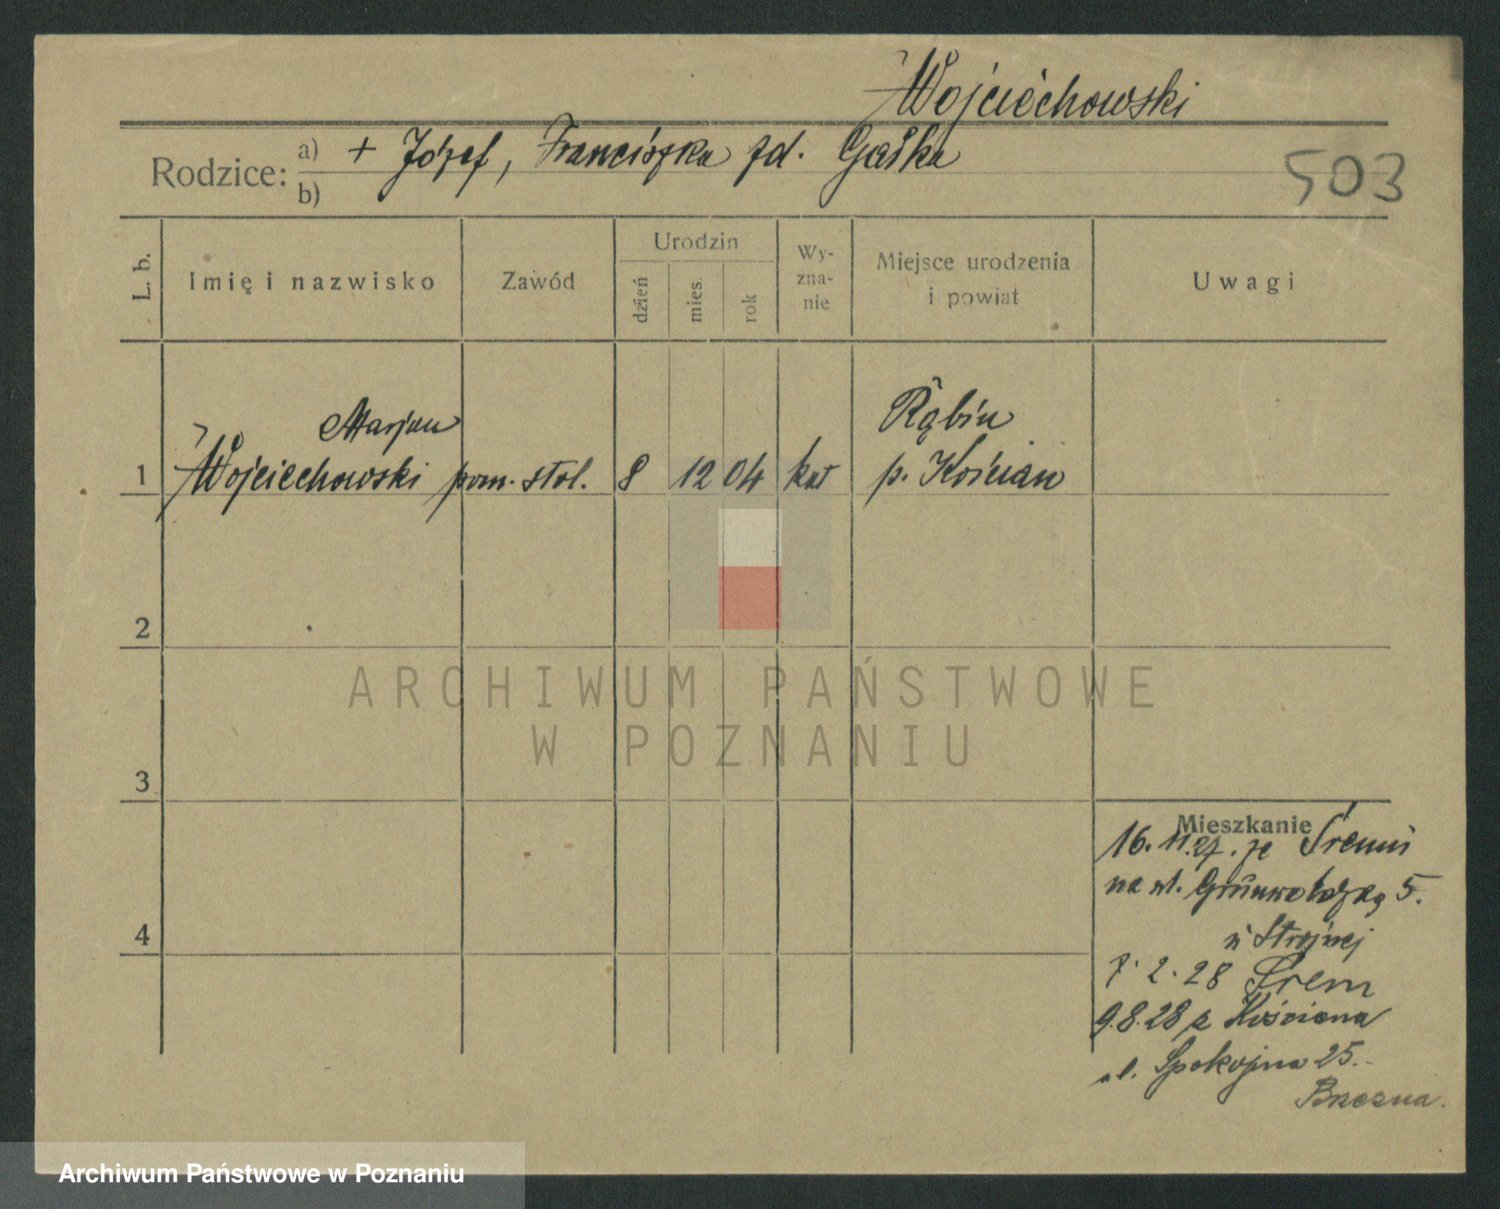 Wojciechowski
Rodzice: a) + Józef, Franciszka zd. Gaśka
b)
503
L. b. Imię i nazwisko Zawód Urodzin dzień mies. rok Wy-zna-nie Miejsce urodzenia i powiat Uwagi
Marjan Rąbin
1 Wojciechowski pom. stol. 8 12 04 kat p. Kościan
2
3
4
Mieszkanie
16. 11. 27. ze Śremu
na ul. Grunwaldzką 5.
Strojnej
7. 2. 28 Śrem
9.8.28 z Kościana
ul. Spokojna 25.
ARCHIWUM PAŃSTWOWE
W POZNANIU
Archiwum Państwowe w Poznaniu